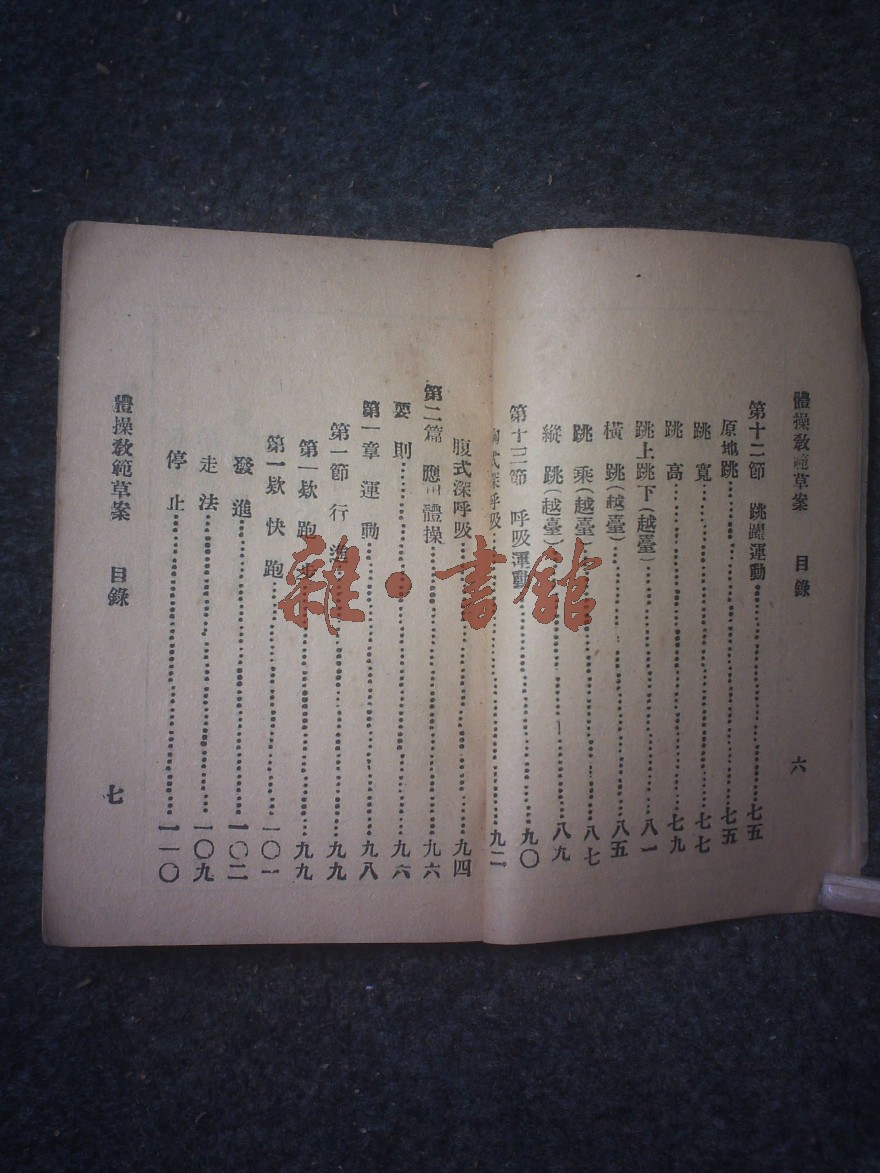 體操教範草案　目錄　六
第十二節　跳躍運動……七五
原地跳……七五
跳寬……七七
跳高……七九
跳上跳下(越臺)……八一
橫跳(越臺)……八五
跳乘(越臺)……八七
縱跳(越臺)……八九
第十三節　呼吸運動……九〇
胸式深呼吸……九二
腹式深呼吸……九四
第二篇　應用體操……九六
要則……九六
第一章　運動……九八
第一節　行進……九九
第一欵　跑步……九九
第一欵　快跑……一〇一
發進……一〇二
走法……一〇九
停止……一一〇
體操教範草案　目錄　七
雜·書館